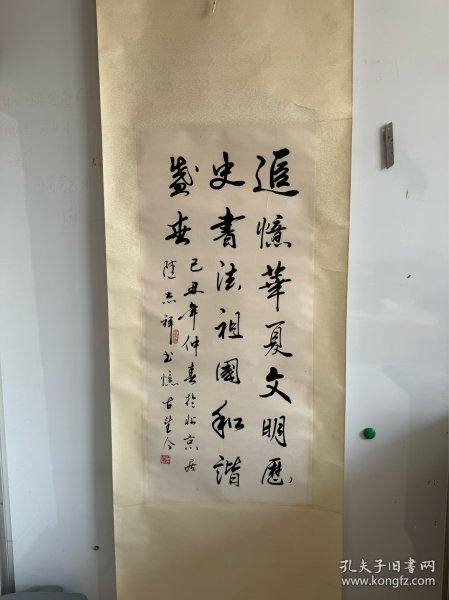 追憶華夏文明歷
史書法祖國和諧
盛世
己丑年仲春於北京居
随志祥书憶古望今
孔夫子旧书网
www.kongfz.com